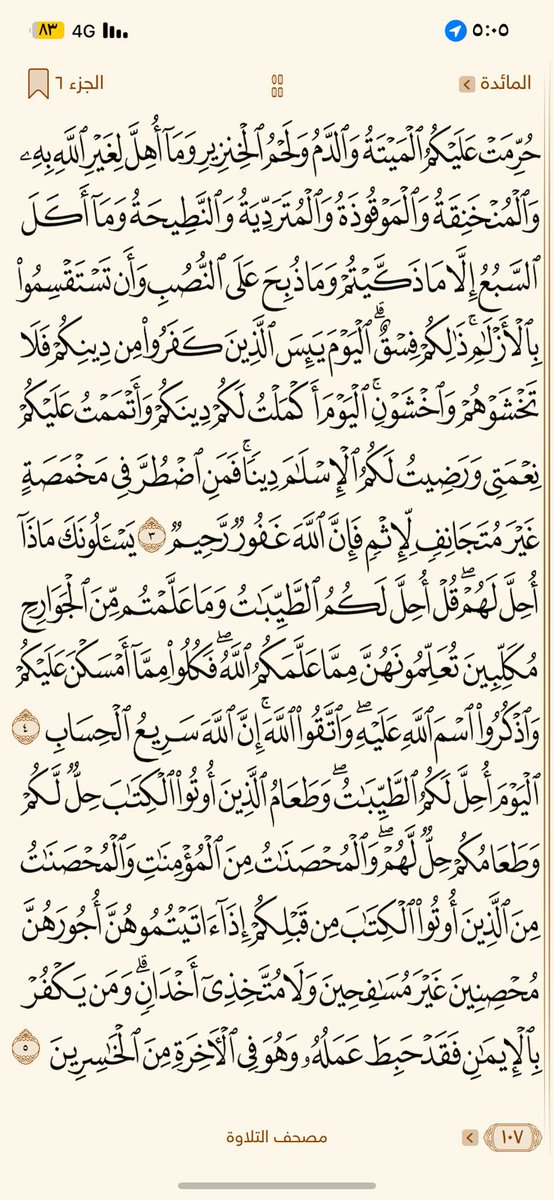 ٥:٠٥ 4G ٨٣
المائدة الجزء ٦
حُرِّمَتْ عَلَيْكُمُ ٱلْمَيْتَةُ وَٱلدَّمُ وَلَحْمُ ٱلْخِنزِيرِ وَمَآ أُهِلَّ لِغَيْرِ ٱللَّهِ بِهِۦ
وَٱلْمُنْخَنِقَةُ وَٱلْمَوْقُوذَةُ وَٱلْمُتَرَدِّيَةُ وَٱلنَّطِيحَةُ وَمَآ أَكَلَ
ٱلسَّبُعُ إِلَّا مَا ذَكَّيْتُمْ وَمَا ذُبِحَ عَلَى ٱلنُّصُبِ وَأَن تَسْتَقْسِمُوا۟
بِٱلْأَزْلَٰمِ ۚ ذَٰلِكُمْ فِسْقٌ ۗ ٱلْيَوْمَ يَئِسَ ٱلَّذِينَ كَفَرُوا۟ مِن دِينِكُمْ فَلَا
تَخْشَوْهُمْ وَٱخْشَوْنِ ۚ ٱلْيَوْمَ أَكْمَلْتُ لَكُمْ دِينَكُمْ وَأَتْمَمْتُ عَلَيْكُمْ
نِعْمَتِى وَرَضِيتُ لَكُمُ ٱلْإِسْلَٰمَ دِينًا ۚ فَمَنِ ٱضْطُرَّ فِى مَخْمَصَةٍ
غَيْرَ مُتَجَانِفٍ لِّإِثْمٍ ۙ فَإِنَّ ٱللَّهَ غَفُورٌ رَّحِيمٌ ٣ يَسْـَٔلُونَكَ مَاذَآ
أُحِلَّ لَهُمْ ۖ قُلْ أُحِلَّ لَكُمُ ٱلطَّيِّبَٰتُ ۙ وَمَا عَلَّمْتُم مِّنَ ٱلْجَوَارِحِ
مُكَلِّبِينَ تُعَلِّمُونَهُنَّ مِمَّا عَلَّمَكُمُ ٱللَّهُ ۖ فَكُلُوا۟ مِمَّآ أَمْسَكْنَ عَلَيْكُمْ
وَٱذْكُرُوا۟ ٱسْمَ ٱللَّهِ عَلَيْهِ ۖ وَٱتَّقُوا۟ ٱللَّهَ ۚ إِنَّ ٱللَّهَ سَرِيعُ ٱلْحِسَابِ ٤
ٱلْيَوْمَ أُحِلَّ لَكُمُ ٱلطَّيِّبَٰتُ ۖ وَطَعَامُ ٱلَّذِينَ أُوتُوا۟ ٱلْكِتَٰبَ حِلٌّ لَّكُمْ
وَطَعَامُكُمْ حِلٌّ لَّهُمْ ۖ وَٱلْمُحْصَنَٰتُ مِنَ ٱلْمُؤْمِنَٰتِ وَٱلْمُحْصَنَٰتُ
مِنَ ٱلَّذِينَ أُوتُوا۟ ٱلْكِتَٰبَ مِن قَبْلِكُمْ إِذَآ ءَاتَيْتُمُوهُنَّ أُجُورَهُنَّ
مُحْصِنِينَ غَيْرَ مُسَٰفِحِينَ وَلَا مُتَّخِذِىٓ أَخْدَانٍ ۗ وَمَن يَكْفُرْ
بِٱلْإِيمَٰنِ فَقَدْ حَبِطَ عَمَلُهُۥ وَهُوَ فِى ٱلْءَاخِرَةِ مِنَ ٱلْخَٰسِرِينَ ٥
١٠٧ مصحف التلاوة